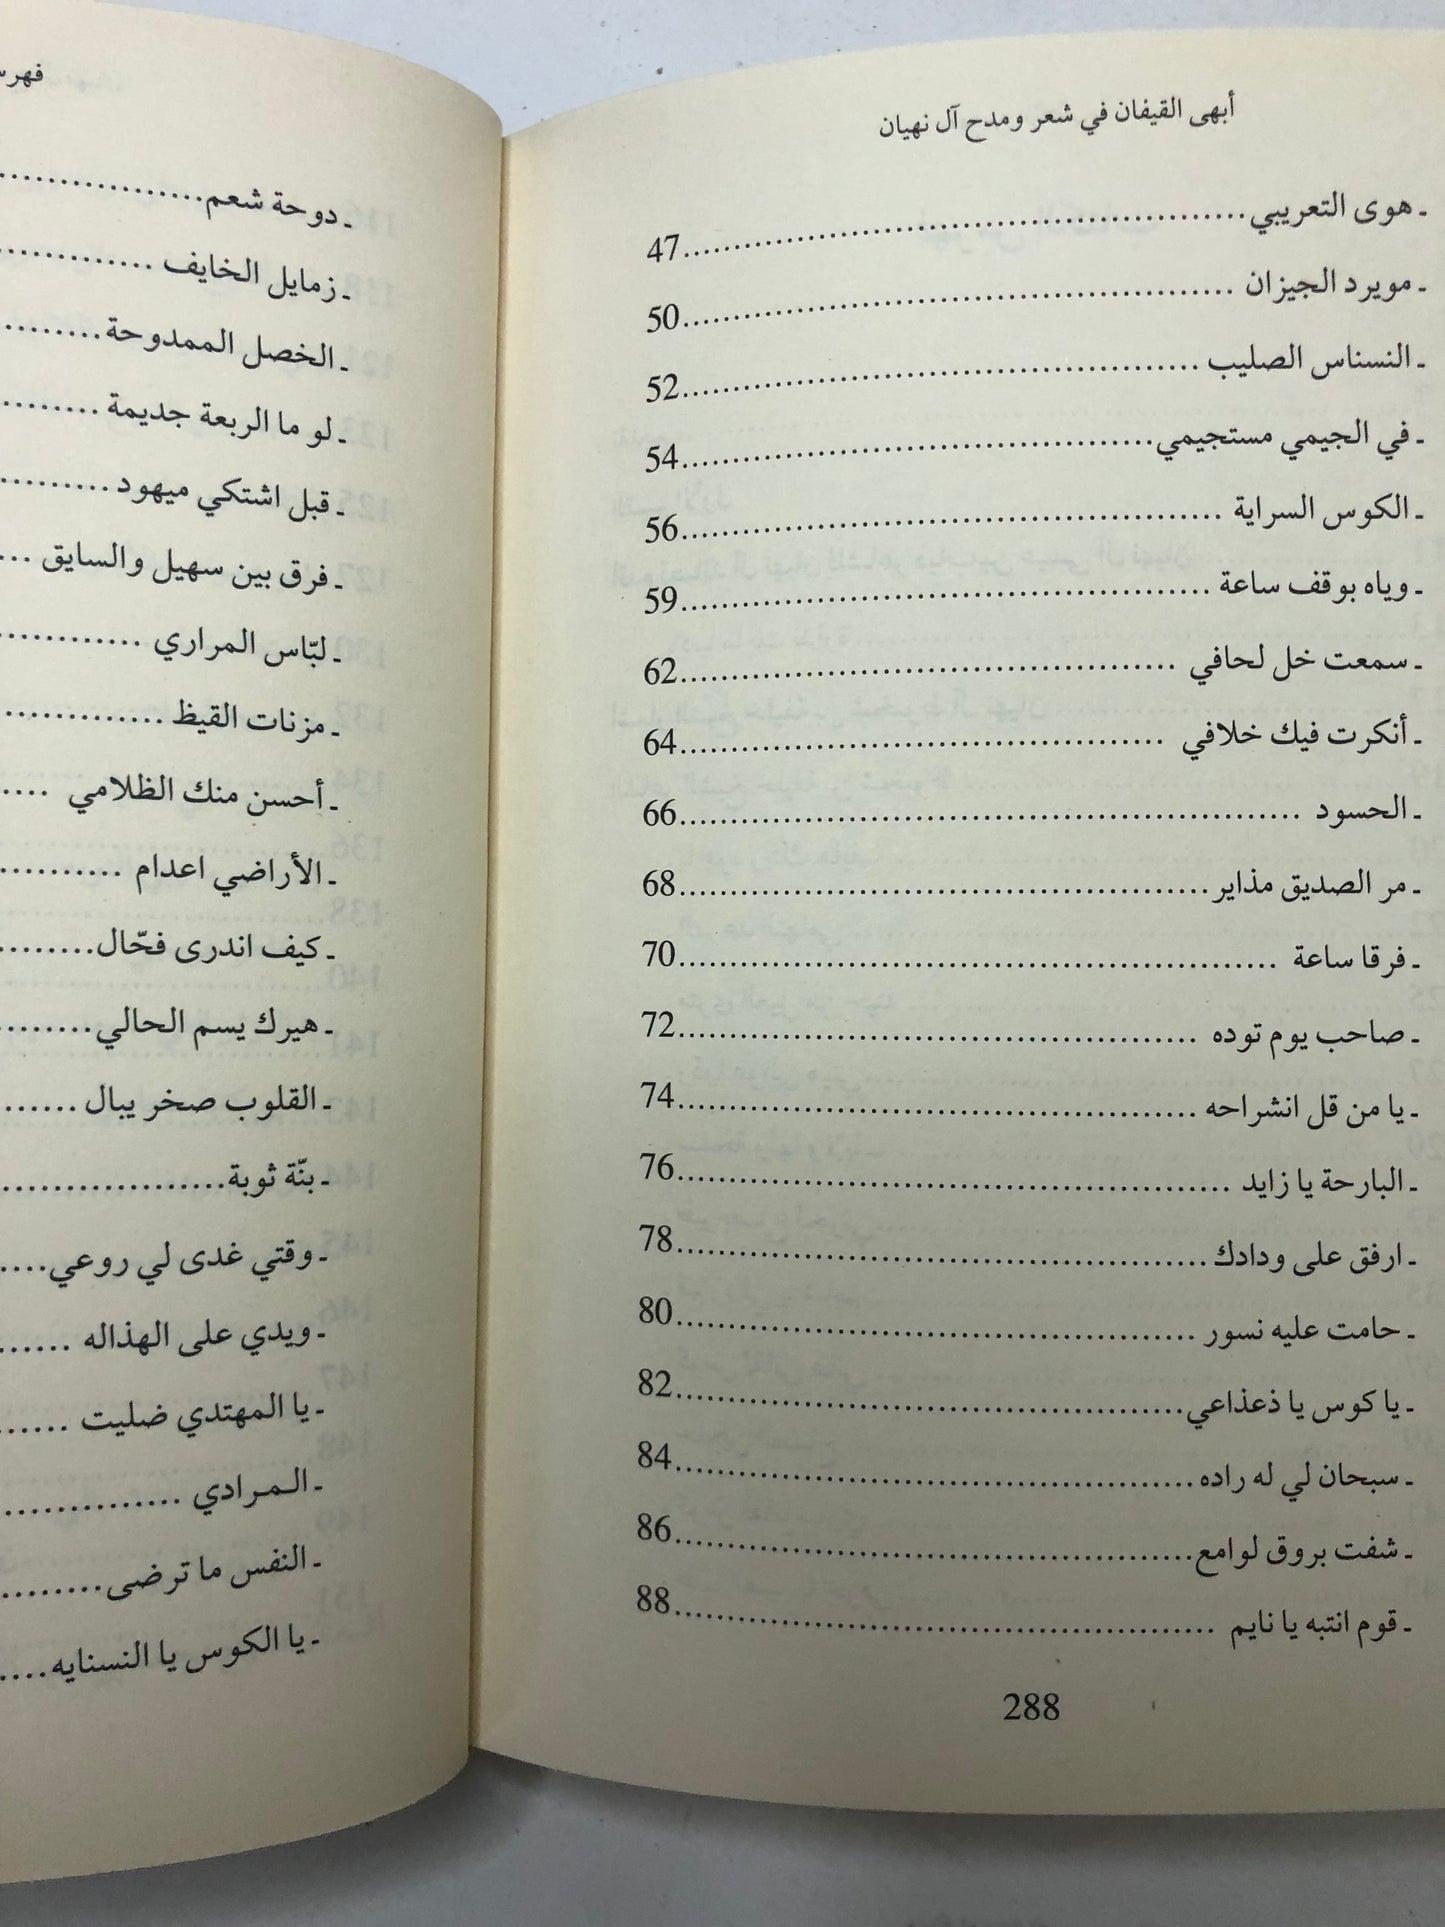 أبهى القيفان في شعر ومدح آل نهيان
ـ هوى التعريبي........................................47
ـ مويرد الجيزان ........................................50
ـ النسناس الصليب ........................................52
ـ في الجيمي مستجيمي........................................54
ـ الكوس السراية ........................................56
ـ وياه بوقف ساعة ........................................59
ـ سمعت خل لحافي ........................................62
ـ أنكرت فيك خلافي ........................................64
ـ الحسود ........................................66
ـ مر الصديق مذاير........................................68
ـ فرقا ساعة ........................................70
ـ صاحب يوم توده ........................................72
ـ يا من قل انشراحه ........................................74
ـ البارحة يا زايد ........................................76
ـ ارفق على ودادك........................................78
ـ حامت عليه نسور ........................................80
ـ يا كوس يا ذعذاعي........................................82
ـ سبحان لي له راده ........................................84
ـ شفت بروق لوامع........................................86
ـ قوم انتبه يا نايم ........................................88
288
ـ دوحة شعم.................
ـ زمايل الخايف .............
ـ الخصل الممدوحة.........
ـ لو ما الربعة جديمة ........
ـ قبل اشتكي ميهود.........
ـ فرق بين سهيل والسايق ...
ـ لبّاس المراري ............
ـ مزنات القيظ .............
ـ أحسن منك الظلامي ....
ـ الأراضي اعدام ..........
ـ كيف اندرى فحّال.........
ـ هيرك يسم الحالي.........
ـ القلوب صخر يبال ......
ـ بنّة ثوبة..................
ـ وقتي غدى لي روعي....
ـ ويدي على الهذاله ......
ـ يا المهتدي ضليت ......
ـ المرادي ...............
ـ النفس ما ترضى.........
ـ يا الكوس يا النسنايه....